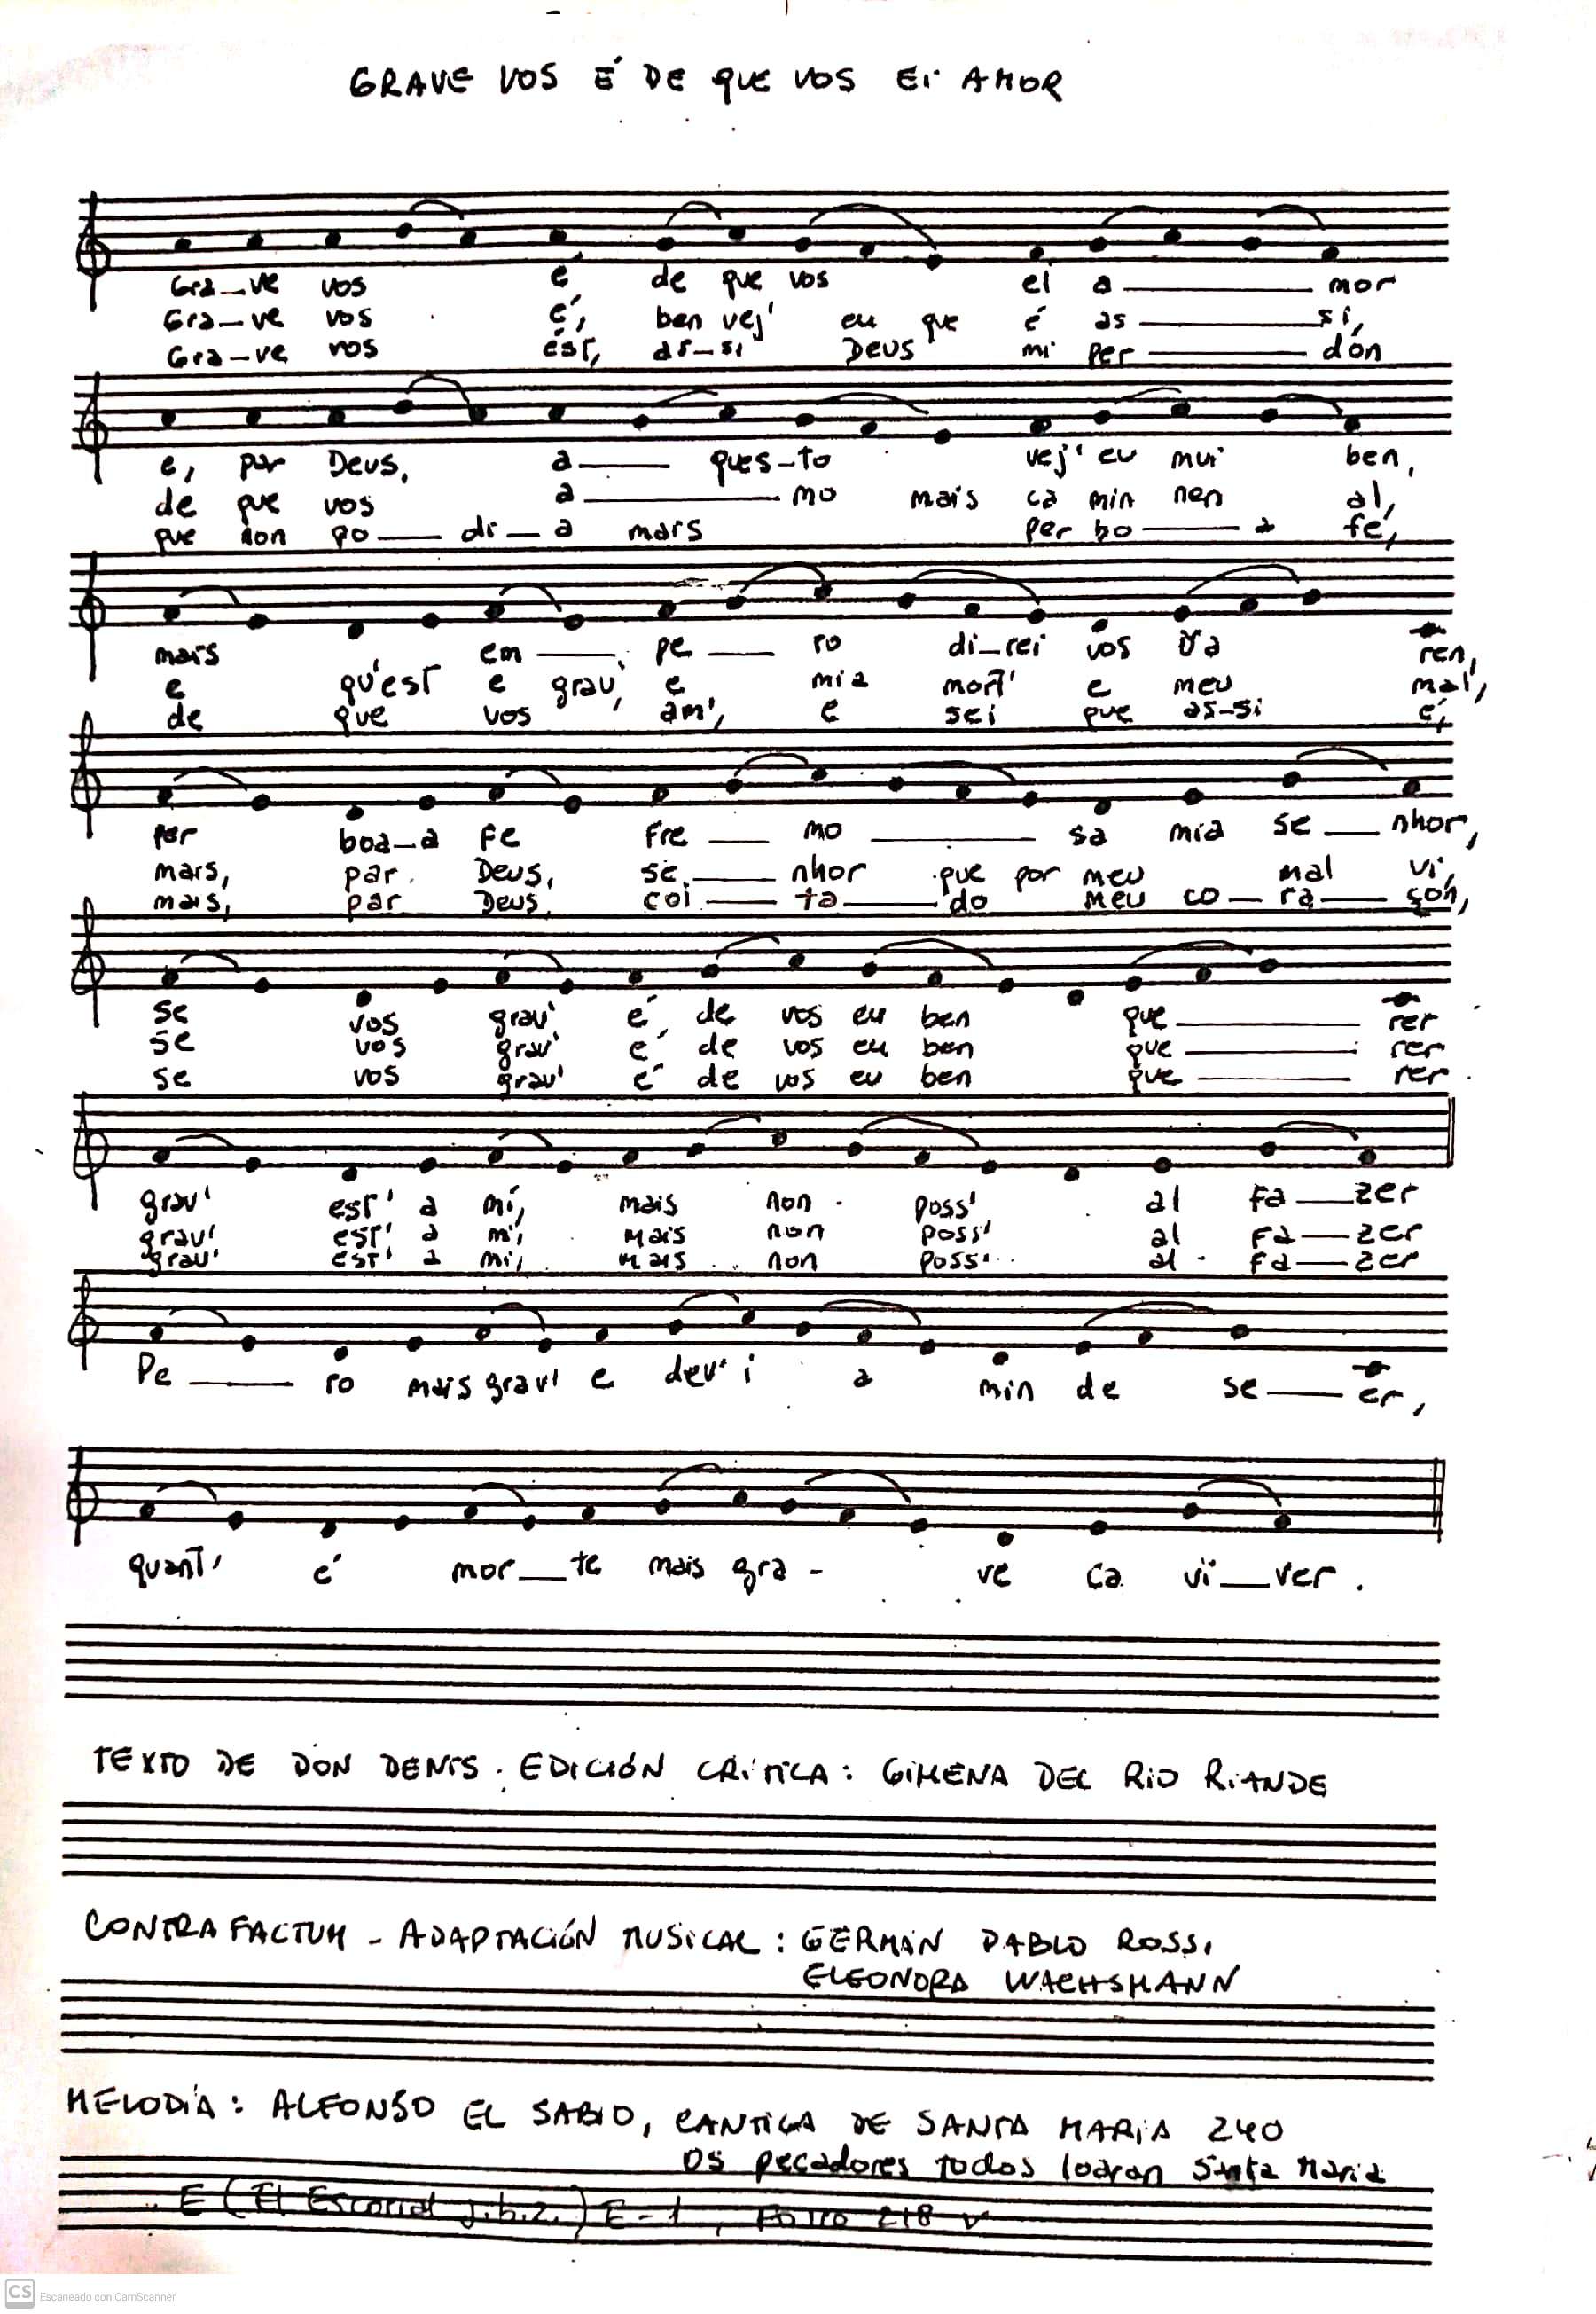 GRAVE VOS É DE QUE VOS EI AMOR
Gra—ve vos é de que vos ei a——mor
Gra—ve vos é, ben vej' eu que é as——si,
Gra—ve vos ést, as—si Deus mi per——dón
e, par Deus, a—— ques—to vej' eu mui ben,
de que vos a——mo mais ca min nen al,
que non po—di—a mais per bo——a fé,
mais em—pe—ro di—rei vos ũa ren,
e qu'est e grav', e mia mort' e meu mal,
de que vos am', e sei que as-si é,
Per boa—a fe fre—mo——sa mia se—nhor,
mais, par Deus, se—nhor que por meu mal vi,
mais, par Deus, coi—ta—do meu co—ra—çón,
se vos grav' é de vos eu ben que——rer
se vos grav' é de vos eu ben que——rer
se vos grav' é de vos eu ben que——rer
grav' est' a mí, mais non poss' al fa—zer
grav' est' a mí, mais non poss' al fa—zer
grav' est' a mí, mais non poss' al fa—zer
Pe——ro mais grav' e dev' i a min de se—er,
quant' é mor—te mais gra- ve ca vi—ver.
TEXTO DE DON DENIS. EDICIÓN CRÍTICA: GIMENA DEL RIO RIANDE
CONTRAFACTUM - ADAPTACIÓN MUSICAL: GERMÁN PABLO ROSSI,
ELEONORA WACHSMANN
MELODÍA: ALFONSO EL SABIO, CANTIGA DE SANTA MARIA 240
OS pecadores todos loaran Santa Maria
E (El Escorial j.b.2.) E-1, Folio 218 v
CS Escaneado con CamScanner